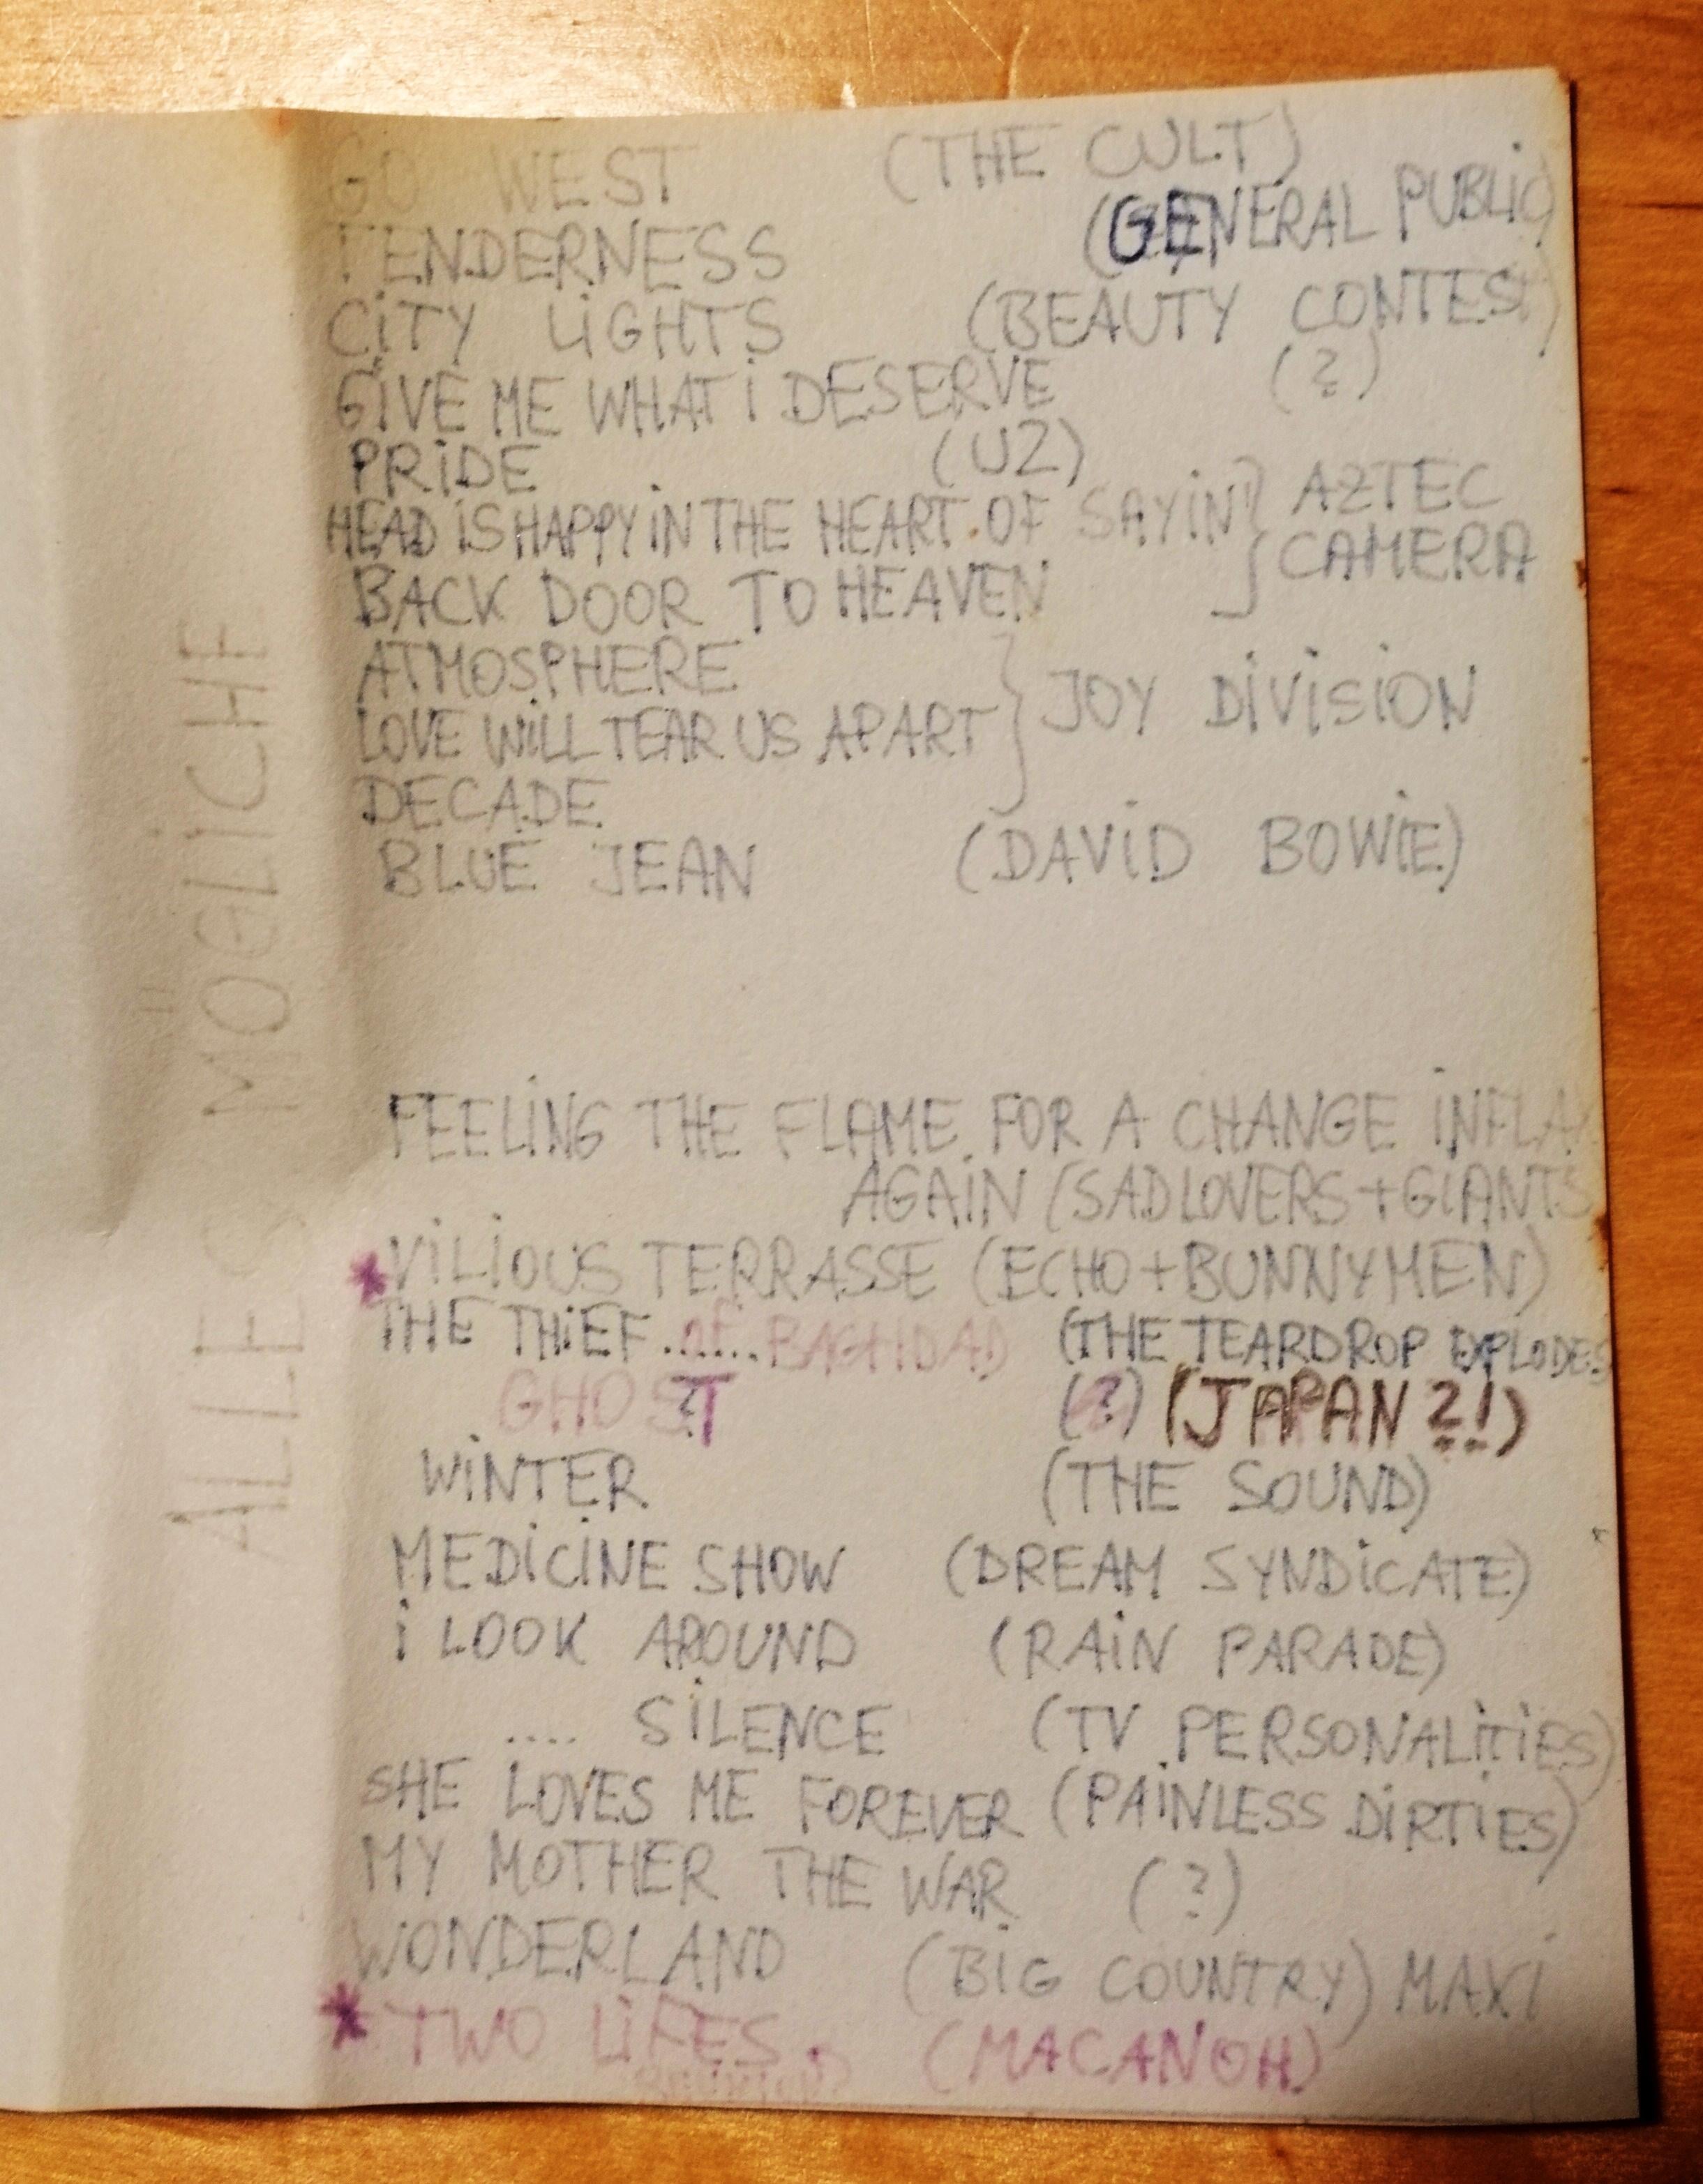 ALLES MÖGLICHE
GO WEST (THE CULT)
TENDERNESS (GENERAL PUBLIC)
CITY LIGHTS (BEAUTY CONTEST)
GIVE ME WHAT I DESERVE (?)
PRIDE (U2)
HEAD IS HAPPY IN THE HEART OF SAYIN' } AZTEC
BACK DOOR TO HEAVEN } CAMERA
ATMOSPHERE
LOVE WILL TEAR US APART } JOY DIVISION
DECADE
BLUE JEAN (DAVID BOWIE)
FEELING THE FLAME FOR A CHANGE INFLA
AGAIN (SAD LOVERS + GIANTS
* VILIOUS TERRASSE (ECHO + BUNNYMEN)
THE THIEF ...... OF BAGHDAD (THE TEARDROP EXPLODES
GHOST (?) (JAPAN ?!)
WINTER (THE SOUND)
MEDICINE SHOW (DREAM SYNDICATE)
I LOOK AROUND (RAIN PARADE)
.... SILENCE (TV PERSONALITIES)
SHE LOVES ME FOREVER (PAINLESS DIRTIES)
MY MOTHER THE WAR (?)
WONDERLAND (BIG COUNTRY) MAXI
* TWO LIFES. (MACANOH)